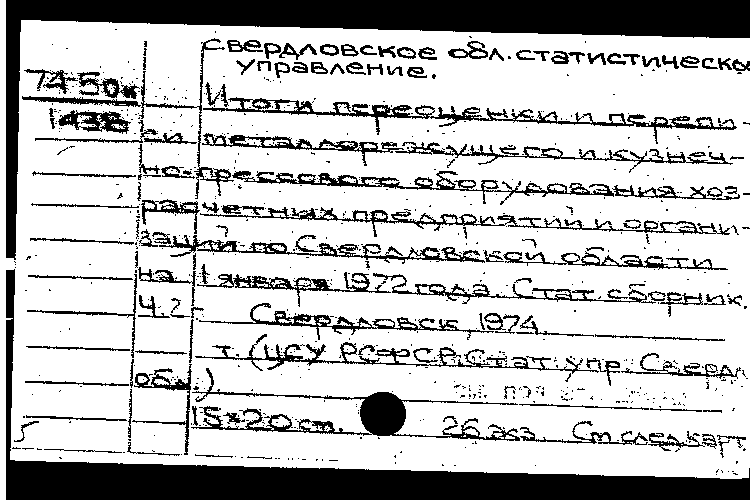 Свердловское обл. статистическо
управление.
74-50к
1438
Итоги переоценки и перепи-
си металлорежущего и кузнеч-
но-прессового оборудования хоз-
расчетных предприятий и органи-
заций по Свердловской области
на 1 января 1972 года. Стат. сборник.
Ч.2-
Свердловск, 1974.
т. (ЦСУ РСФСР. Стат. упр. Свердл
обл.)
15×20 см.
26 экз. См след карт.
5